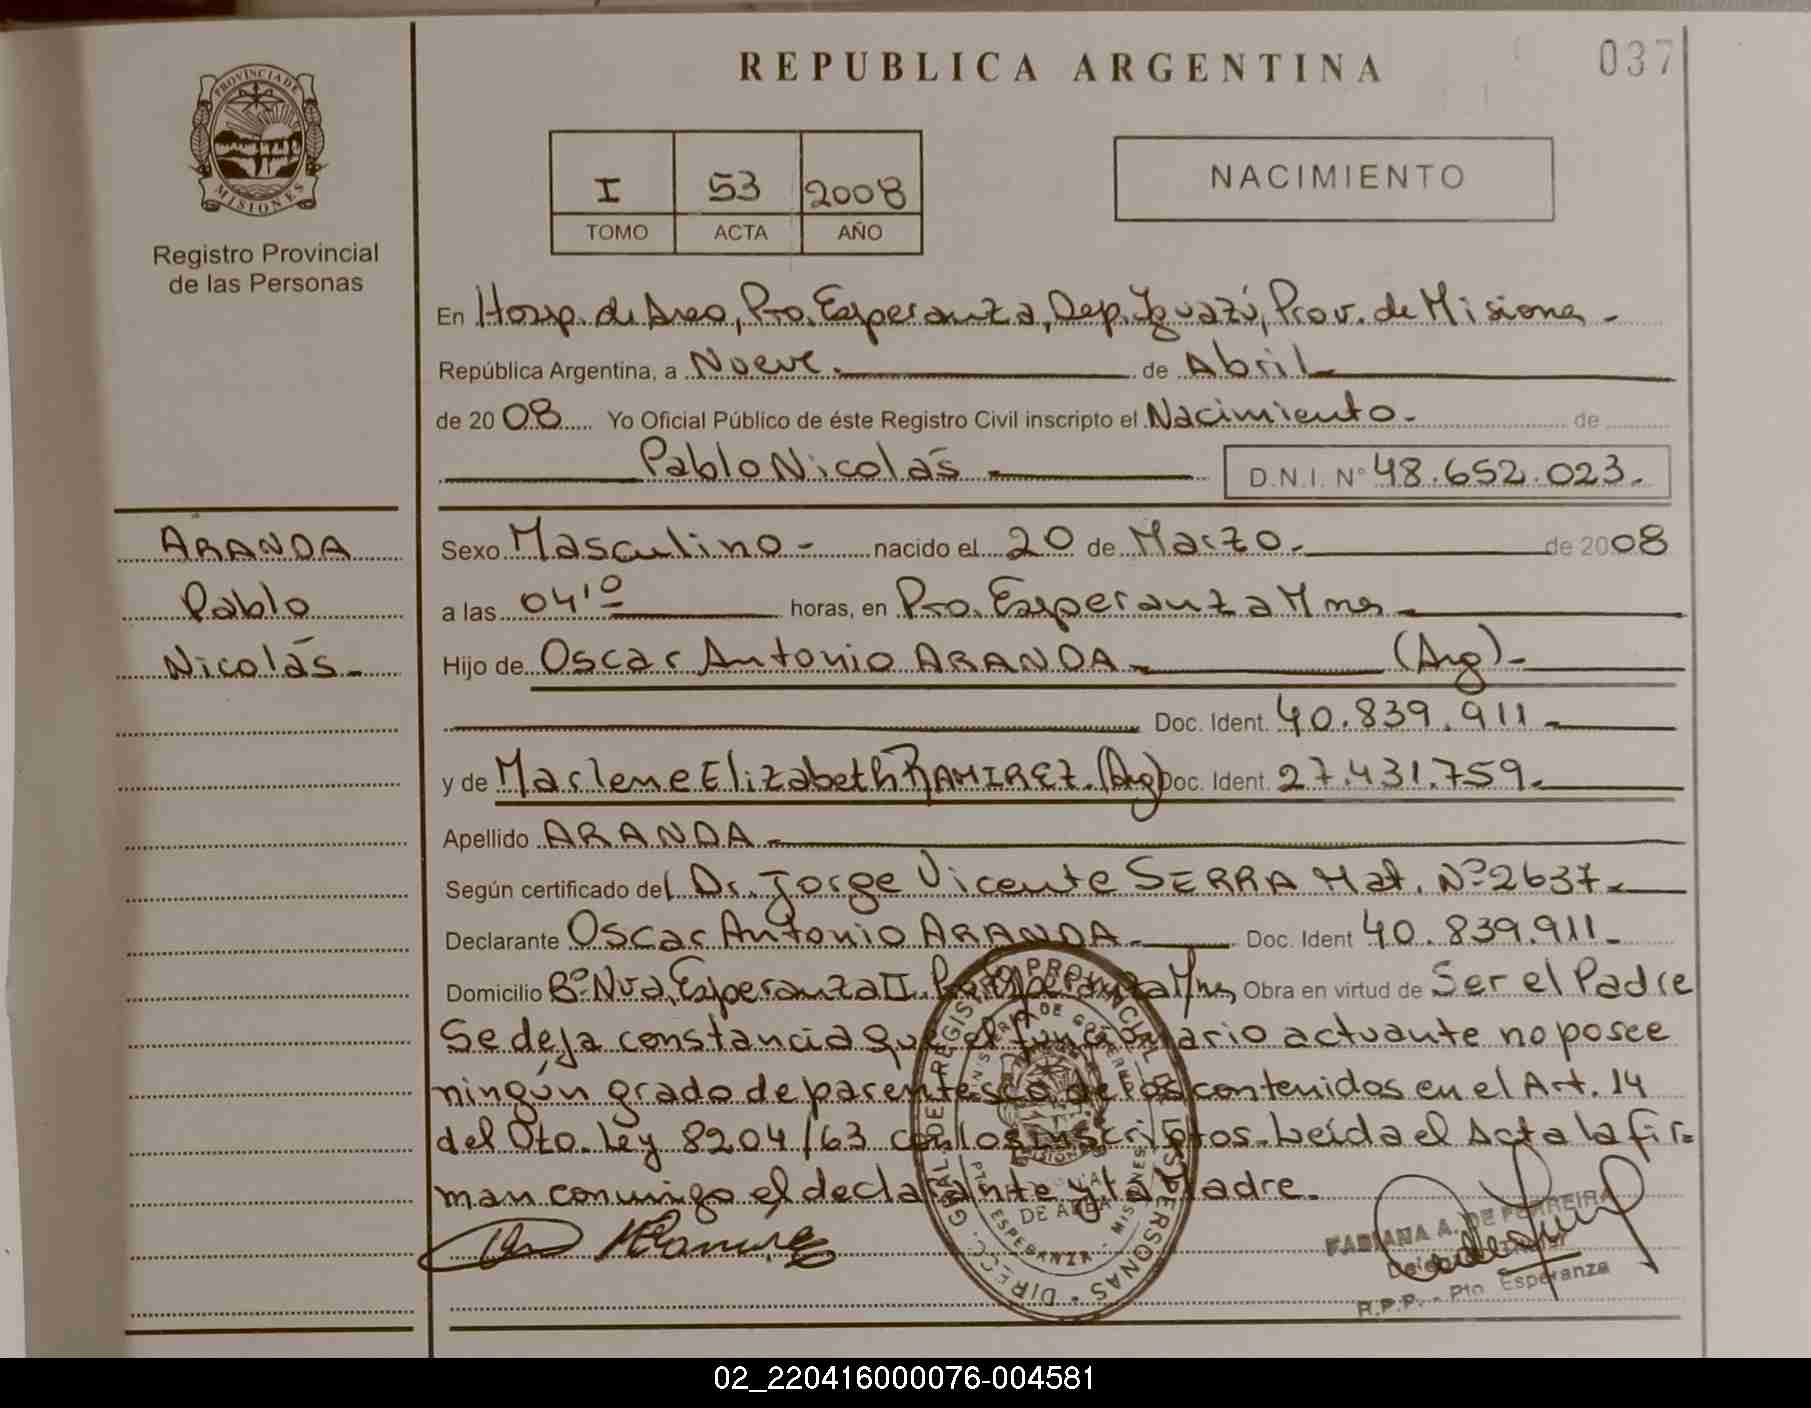 037
REPUBLICA ARGENTINA
PROVINCIA DE
MISIONES
Registro Provincial
de las Personas
I 53 2008
TOMO ACTA AÑO
NACIMIENTO
En Hosp. de Area, Pto. Esperanza, Dep. Iguazú, Prov. de Misiones -
República Argentina, a Nueve. de Abril
de 2008 Yo Oficial Público de éste Registro Civil inscripto el Nacimiento - de
Pablo Nicolás D.N.I. Nº 48.652.023.
ARANDA
Pablo
Nicolás -
Sexo Masculino - nacido el 20 de Marzo - de 2008
a las 04'º horas, en Pto. Esperanza Mnes
Hijo de Oscar Antonio ARANDA (Arg) -
Doc. Ident. 40.839.911
y de Marlene Elizabeth RAMIREZ. (Arg) Doc. Ident. 27.431.759.
Apellido ARANDA
Según certificado del Dr. Jorge Vicente SERRA Mat. Nº 2637
Declarante Oscar Antonio ARANDA Doc. Ident 40.839.911 -
Domicilio Bº Nva. Esperanza II Pto. Esperanza Mnes, Obra en virtud de Ser el Padre
Se deja constancia que el funcionario actuante no posee
ningún grado de parentesco de los contenidos en el Art. 14
del Dto. Ley 8204/63 con los inscriptos. Leída el Acta la fir=
man conmigo el declarante y la Madre.
DIRECC. GRAL. DE REGISTRO PROVINCIAL DE LAS PERSONAS
MINISTERIO DE GOBIERNO
MISIONES
DE AREA
PTO. ESPERANZA - MISIONES
FABIANA A. DE FERREIRA
R.P.P. - Pto. Esperanza
02_220416000076-004581